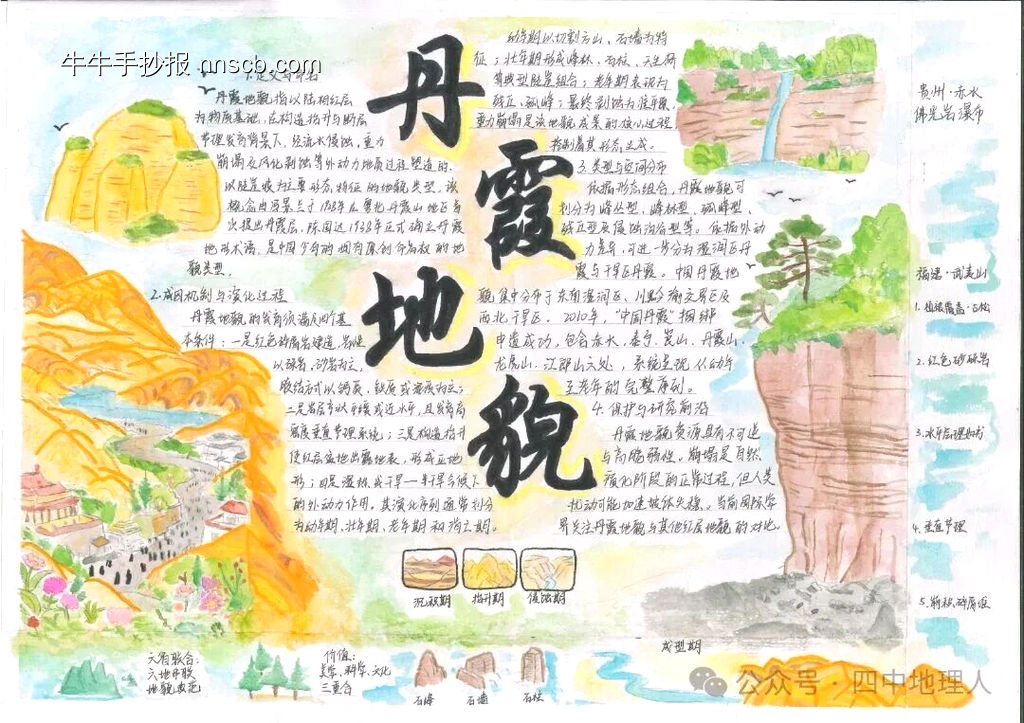 牛牛手抄报 nnscb.com
丹霞地貌
丹霞地貌指以陆相红层
为物质基础,在构造抬升与断层
节理发育背景下,经流水侵蚀,重力
崩塌及风化剥蚀等外动力地质过程塑造的,
以陡崖坡为主要形态特征的地貌类型。该
概念由冯景兰于1928年在粤北丹霞山地区首
次提出丹霞层,陈国达1938年正式确立丹霞
地形术语,是中国少有的拥有原创命名权的地
貌类型。
2.成因机制与演化过程
丹霞地貌的发育须满足四个基
本条件:一是红色碎屑岩建造,岩性
以砾岩,砂岩为主,
胶结方式以钙质,铁质或泥质为主;
二是岩层产状平缓或近水平,且发育高
密度垂直节理系统;三是构造抬升
使红层盆地出露地表,形成正地
形;四是湿热或干旱—半干旱气候下
的外动力作用。其演化序列通常划分
为幼年期,壮年期,老年期和消亡期。
幼年期以切割方山、石墙为特
征;壮年期形成峰林、石柱、天生桥
等典型陡崖组合;老年期表现为
残丘、孤峰;最终剥蚀为准平原。
重力崩塌是该地貌成景的核心过程
控制着其形态生成。
3.类型与空间分布
依据形态组合,丹霞地貌可
划分为峰丛型,峰林型,孤峰型,
残丘型及侵蚀沟谷型等。依据外动
力差异,可进一步分为湿润区丹
霞与干旱区丹霞。中国丹霞地
貌集中分布于东南湿润区、川黔渝交界区及
西北干旱区。2010年,“中国丹霞”捆绑
申遗成功,包含赤水、泰宁、崀山、丹霞山、
龙虎山、江郎山六处,系统呈现从幼年
至老年的完整序列。
4.保护与研究前沿
丹霞地貌资源具有不可逆
与高脆弱性。崩塌是自然
演化阶段的正常过程,但人类
扰动可能加速坡体失稳。当前国际学
界关注丹霞地貌与其他红层地貌的对比。
沉积期
抬升期
侵蚀期
成型期
六省联合:
六地串联
地貌典范
价值:
美学、科学、文化
三重合
石峰
石墙
石柱
贵州·赤水
佛光岩瀑布
福建·武夷山
1.植被覆盖·石松
2.红色砂砾岩
3.水平层理如书
4.垂直节理
公众号·四中地理人